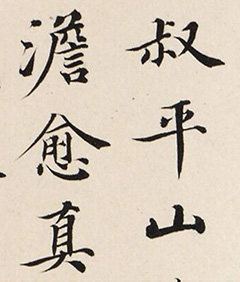 叔平山
澹愈真